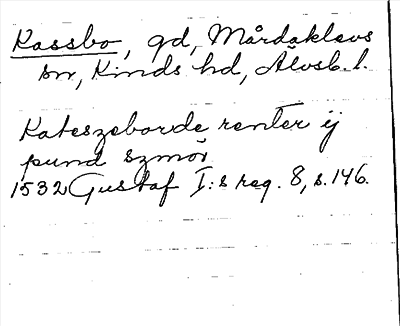 Kassbo, gd, Mårdaklevs
sn, Kinds hd, Älvsb. l.
Kateszeborde renter ij
pund szmör
1532 Gustaf I:s reg. 8, s. 146.